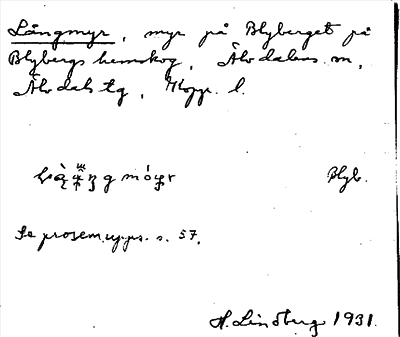 Långmyr, myr på Blyberget på
Blybergs hemskog, Älvdalens sn,
Älvdals tg, Kopp. l.
Blyb.
Se prosem.upps. s. 57.
H. Lindberg 1931.